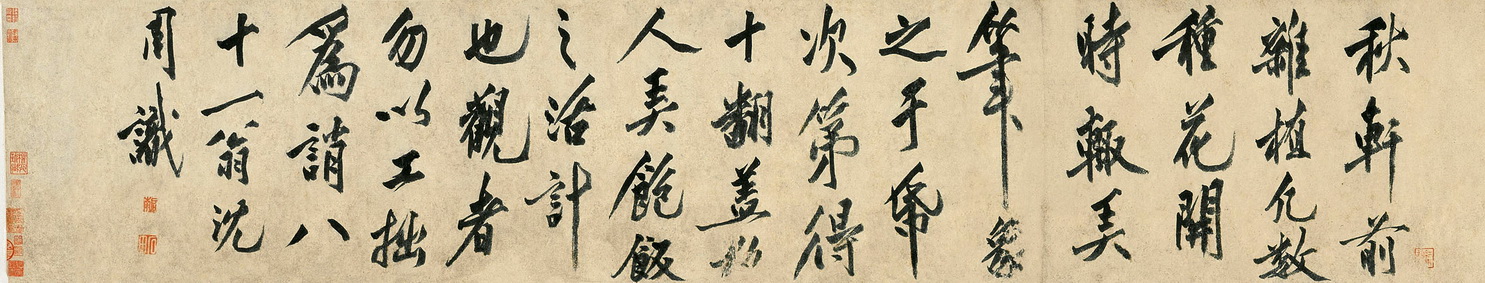 秋軒前
雜植凡數
種花開
時輙美
筆象
之于帋
次第得
十翻蓋
人美飽飯
之活計
也觀者
勿以工拙
爲誚八
十一翁沈
周識